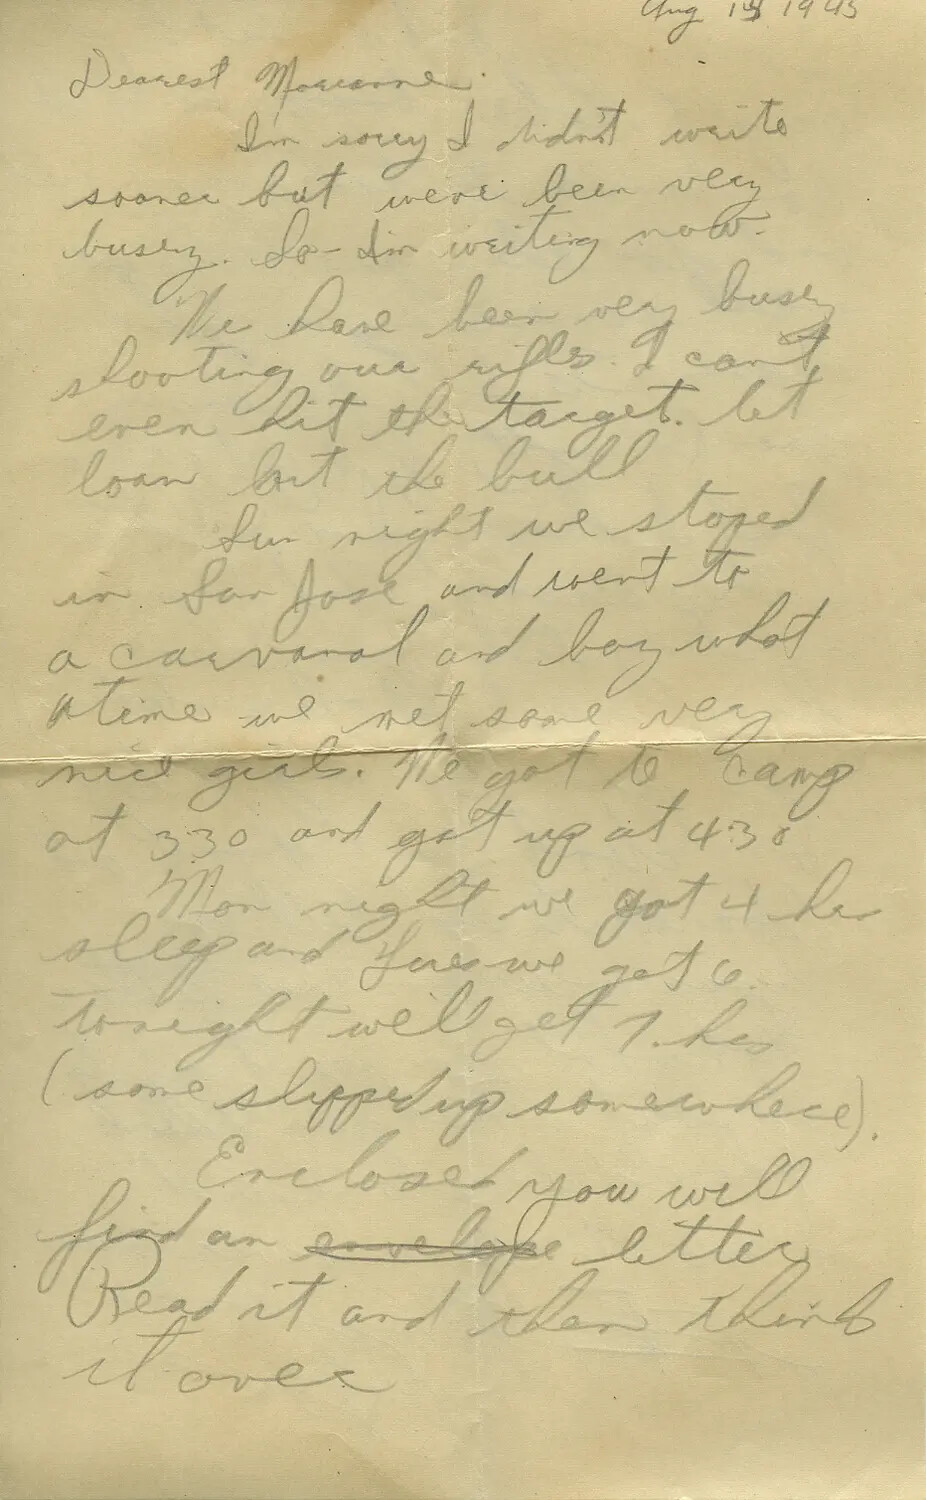 Aug 15 1945
Dearest Marianne.
I'm sorry I didn't write
sooner but were been very
busey. So - I'm writing now.
We have been very busey
shooting our rifles. I can't
even hit the target. let
loan hit the bull
Sun night we stoped
in San Jose and went to
a carvanal and boy what
a time we met some very
nice girls. We got to camp
at 330 and got up at 430
Mon night we got 4 hrs
sleep and Tues we got 6.
tonight we'll get 7. hrs
(some slipped up somewhere).
Enclosed you will
find an envelope letter
Read it and then think
it over